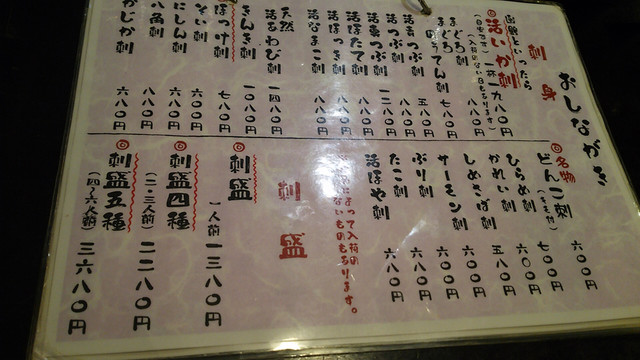 おしながき
刺身
函館といったら
◎活いか刺 一杯 一九八〇円
(入荷のない日もあります)
まぐろ刺 八八〇円
てん刺 七八〇円
つぶ刺 五八〇円
活つぶ刺 八八〇円
活真つぶ刺 一二八〇円
活ほたて刺 八八〇円
活ほっき刺 八八〇円
活なまこ刺 八八〇円
天然
活あわび刺 一四八〇円
きんき刺 一〇八〇円
ほっけ刺 七八〇円
そい刺 六〇〇円
にしん刺 六〇〇円
八角刺 八八〇円
かじか刺 六八〇円
◎名物
どんこ刺(きも付) 六〇〇円
ひらめ刺 七〇〇円
かれい刺 六〇〇円
しめさば刺 五八〇円
サーモン刺 六〇〇円
ぶり刺 六〇〇円
たこ刺 六八〇円
活ほや刺 六八〇円
によって入荷の
ないものもあります。
刺盛
◎刺盛 一人前 一三八〇円
◎刺盛四種 (二・三人前) 二二八〇円
◎刺盛五種 (四〜六人前) 三六八〇円